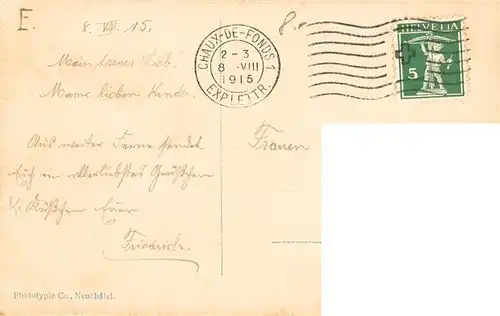 E.
8. VIII. 15.
8.
CHAUX-DE-FONDS 1
2-3
8 . VIII
1915
EXP. LETTR.
HELVETIA
5
Mein treues Lieb.
Meine lieben Kinder.
Aus weiter Ferne sendet
Euch ein allerliebstes Grüßchen
Küßchen Euer
Friedrich.
Frauen
Phototypie Co., Neuchâtel.